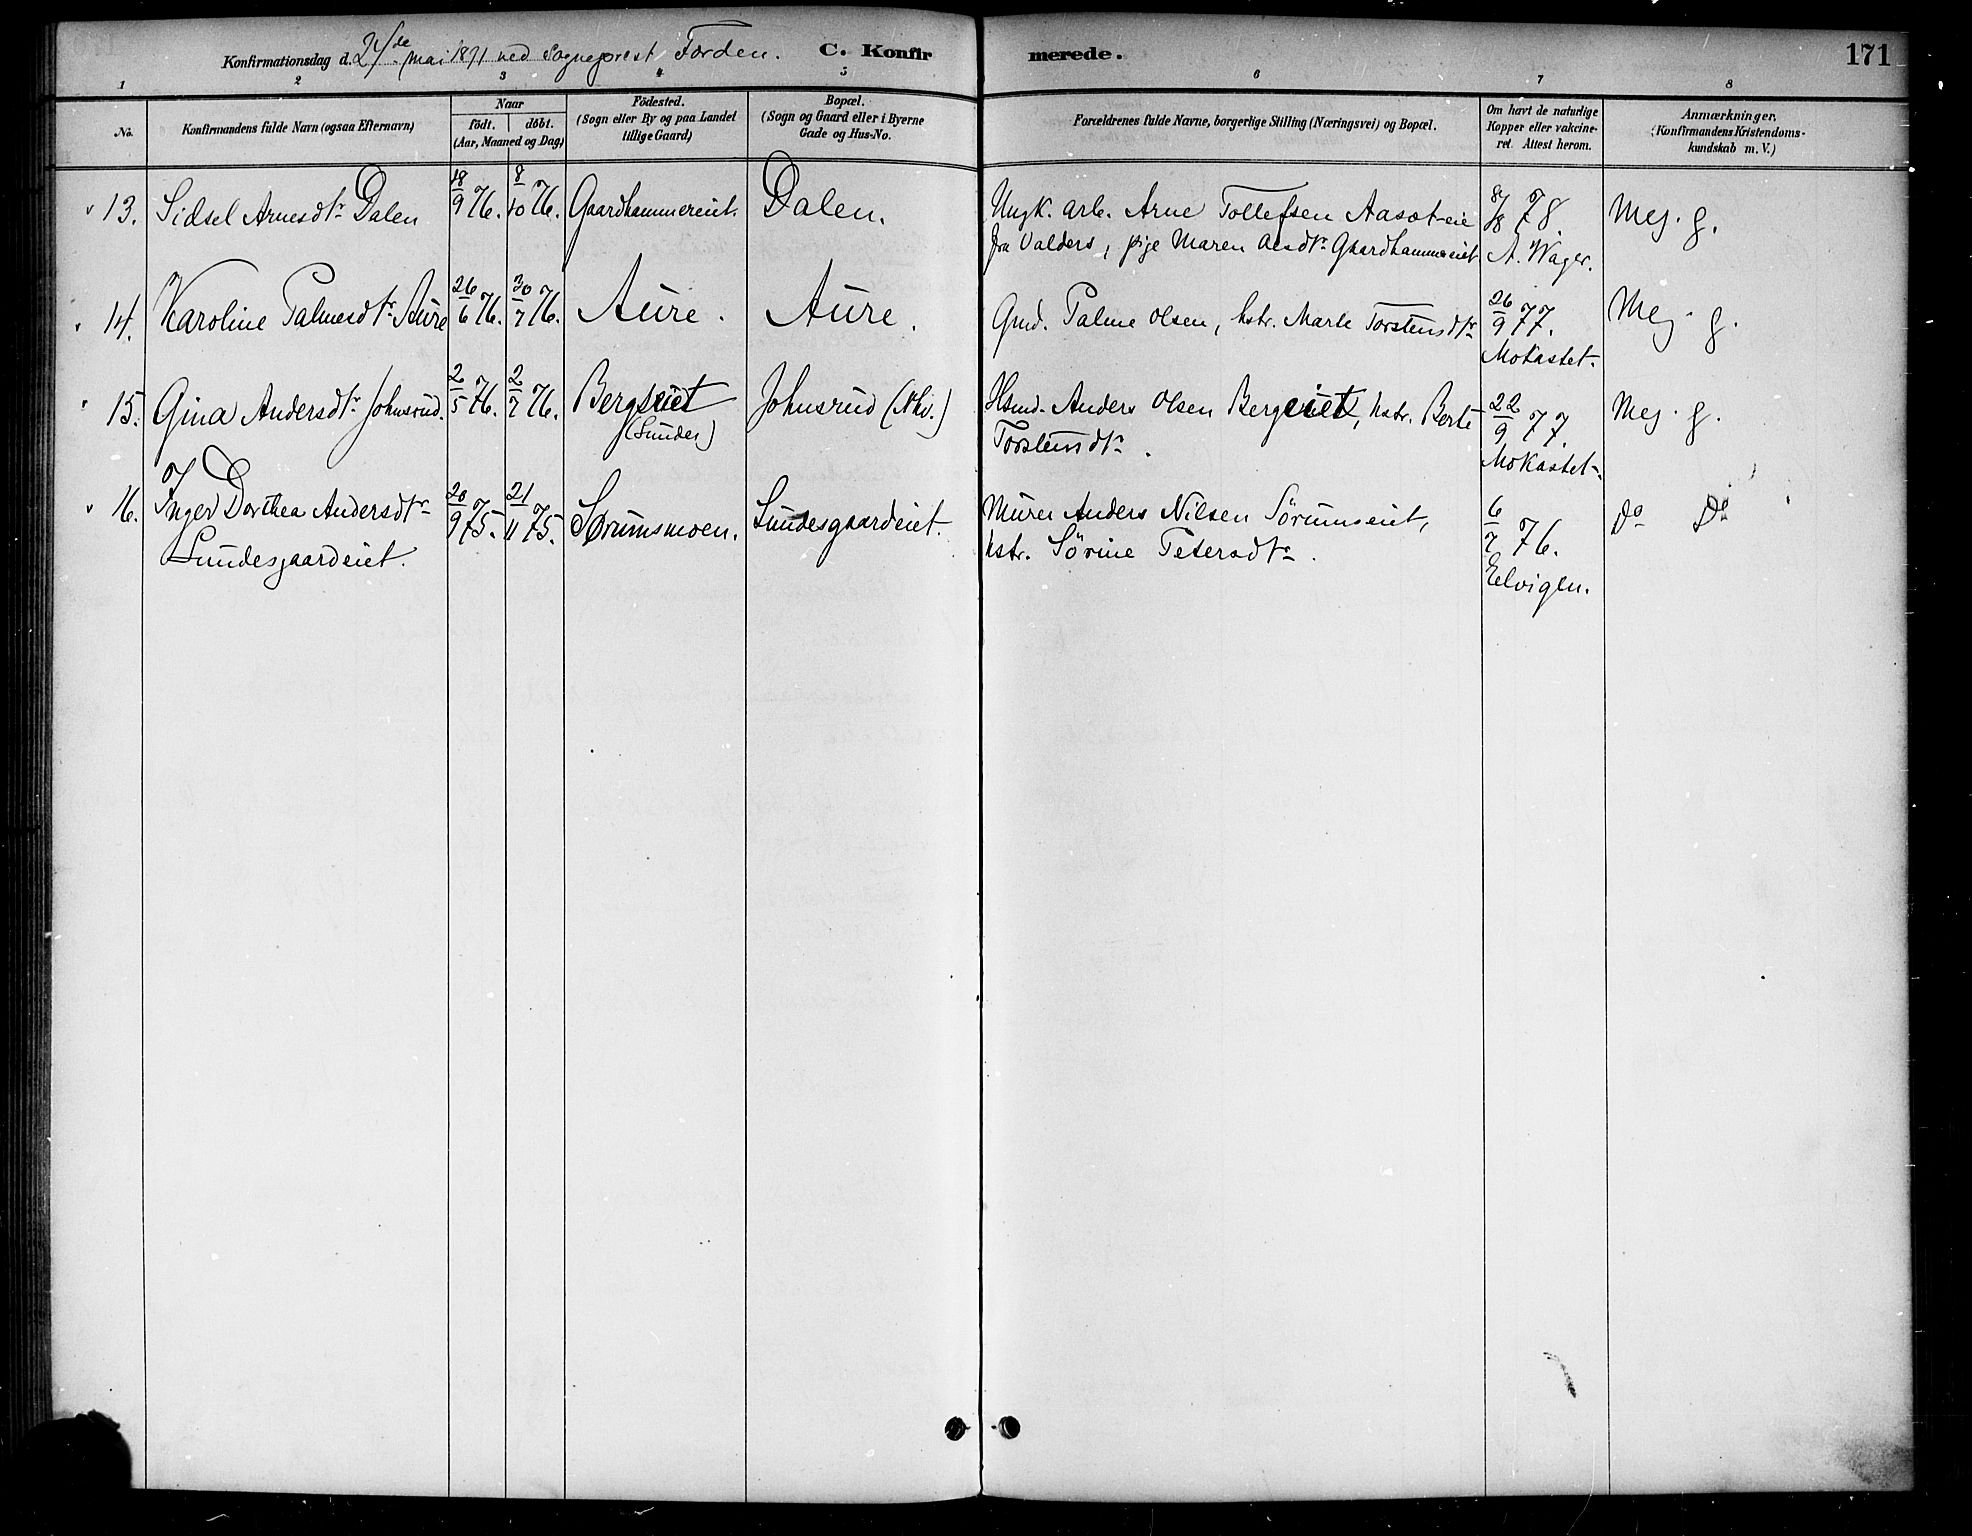 Konfirmationsdag d. 24de mai 1891 ved Sogneprest Førden.
C. Konfirmerede.
171
1 2 3 4 5 6 7 8
No.
Konfirmandens fulde Navn (ogsaa Efternavn)
Naar
födt. döbt.
(Aar, Maaned og Dag)
Födested.
(Sogn eller By og paa Landet
tillige Gaard)
Bopæl.
(Sogn og Gaard eller i Byerne
Gade og Hus-No.
Forældrenes fulde Navne, borgerlige Stilling (Næringsvei) og Bopæl.
Om havt de naturlige
Kopper eller vakcine-
ret. Attest herom.
Anmærkninger.
(Konfirmandens Kristendoms-
kundskab m. V.)
13. Sidsel Arnesdtr Dalen 18/9 76. 8/10 76. Gaardhammereiet. Dalen. Ungk. arb. Arne Tollefsen Aasæt-eie 8/8 78. Meg. g.
fra Valders, pige Maren Olsdtr Gaardhammereiet A. Wager.
14. Karoline Palmesdtr Aure 26/6 76. 30/7 76. Aure. Aure. Gmd. Palme Olsen, hstr. Marte Torstensdtr 26/9 77. Meg. g.
Mokastet.
15. Gina Andersdtr Johnsrud. 2/5 76. 2/7 76. Bergseiet Johnsrud (Nhv.) Hsmd. Anders Olsen Bergeiet, hstr. Berte 22/9 77. Meg. g.
(Sunder) Torstensdtr. Mokastet.
16. Inger Dorthea Andersdtr 20/9 75. 21/11 75. Sorumsmoen. Lundesgaardeiet. Murer Anders Nilsen Sørumseiet, 6/7 76. Do Do
Lundesgaardeiet. hstr. Sørine Petersdtr. Eelvigen.